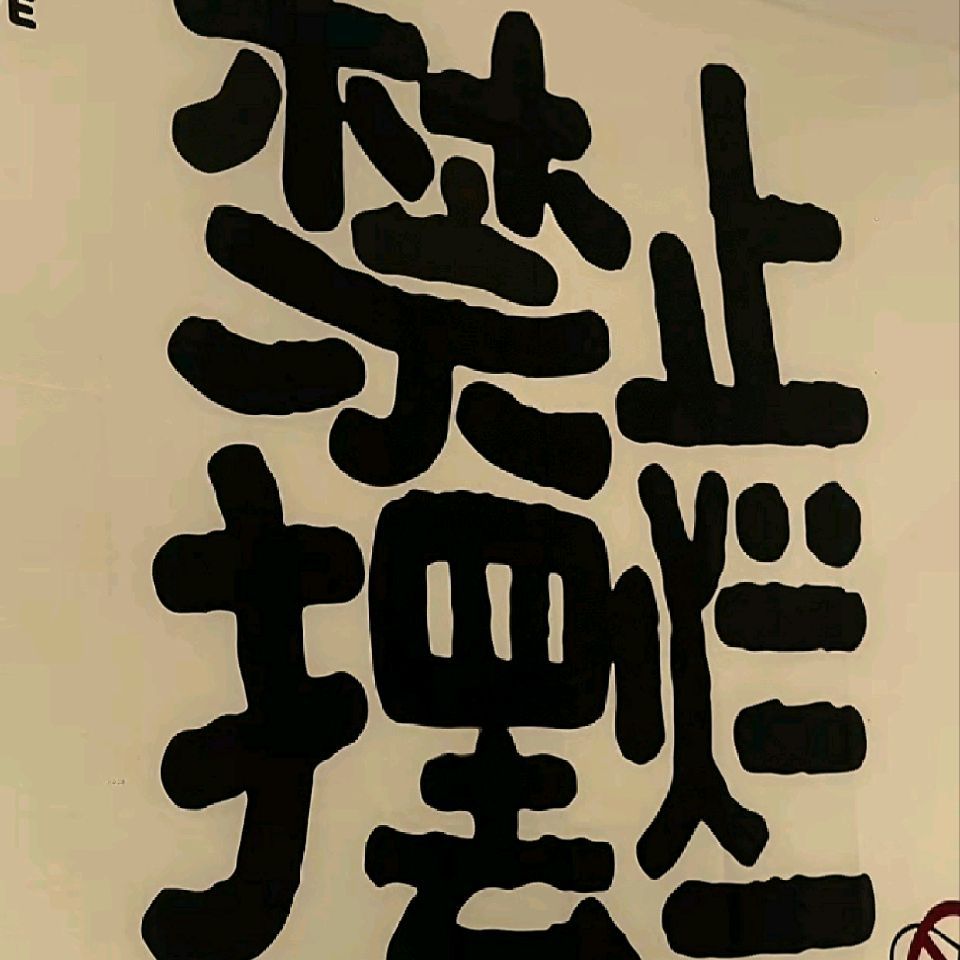 禁止
摆烂